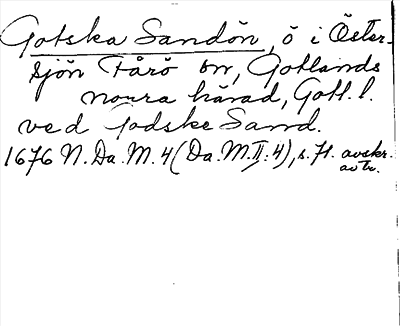 Gotska Sandön, ö i Öster-
sjön Fårö sn, Gotlands
norra härad, Gotl. l.
ved Godske Sand.
1676 N. Da. M. 4 (Da. M. II: 4), s. 71. avskr.
av tr.